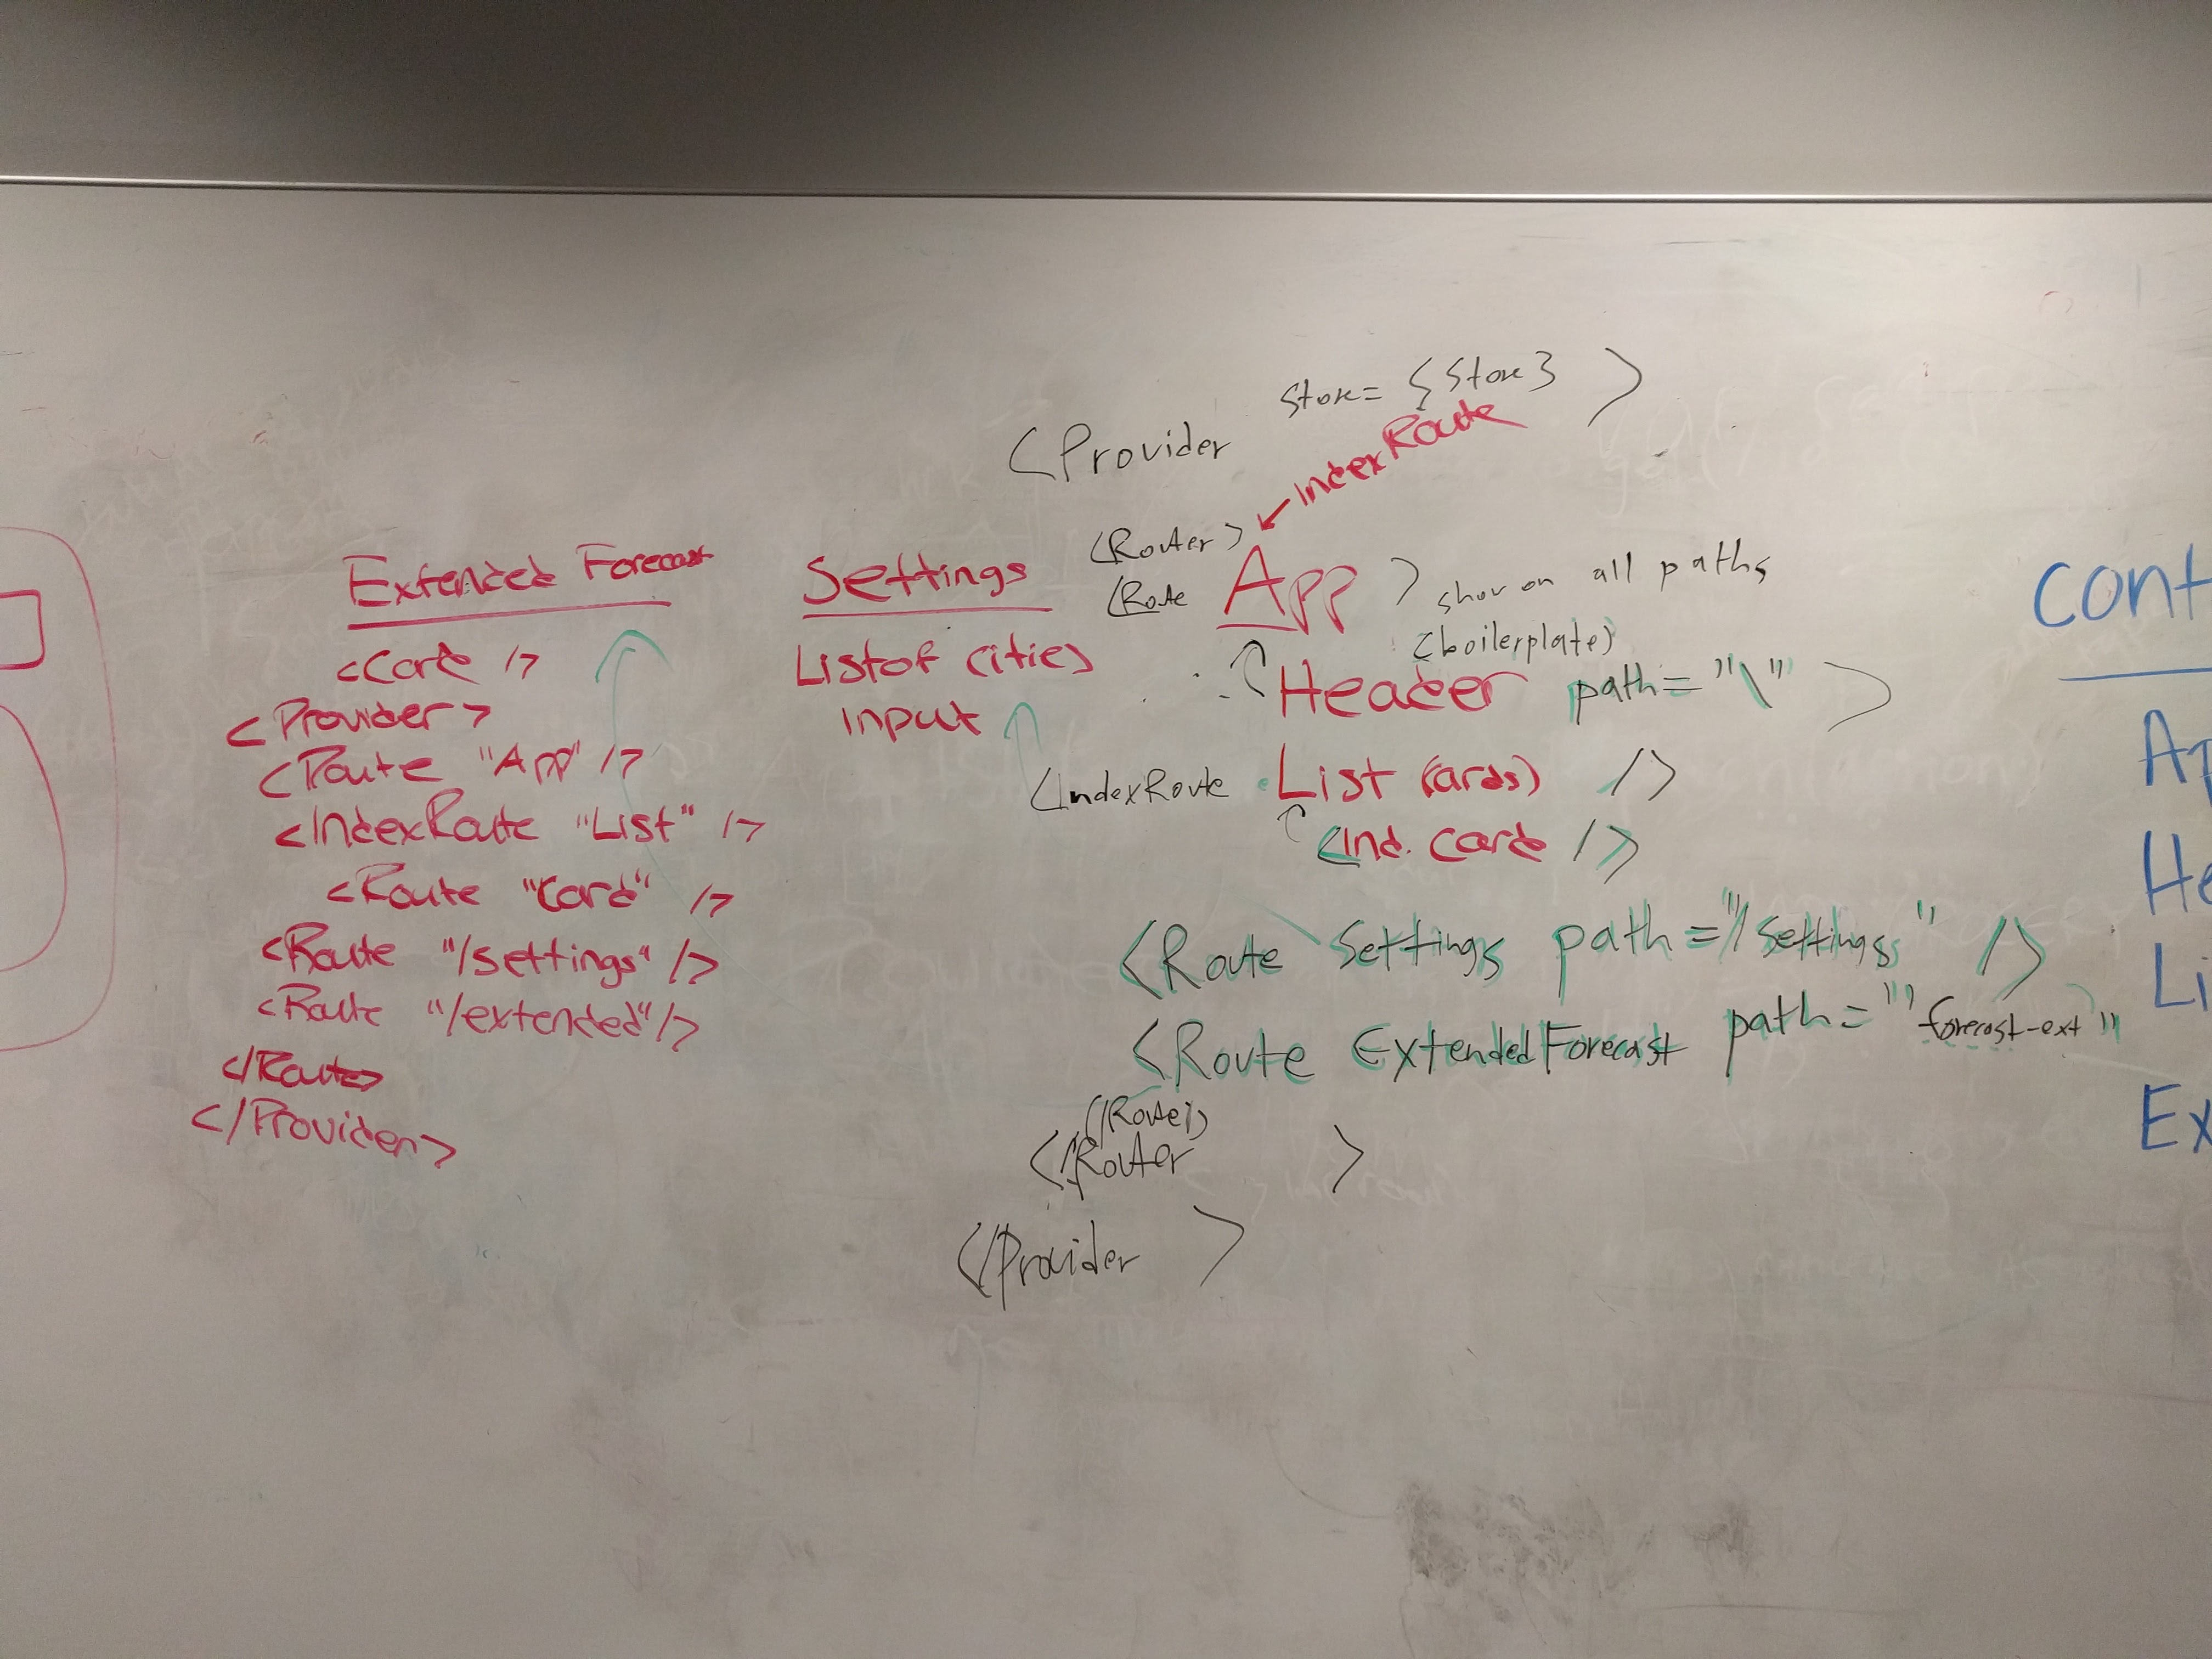 Extended Forecast
<Card />
<Provider>
<Route "App" />
<IndexRoute "List" />
<Route "Card" />
<Route "/settings" />
<Route "/extended"/>
</Route>
</Provider>
Settings
List of Cities
input
<Provider store= {Store} >
IndexRoute
<Router>
<Route App > show on all paths
(boilerplate)
Header path="\" >
<IndexRoute List (Cards) />
<Ind. Card />
<Route Settings path="/settings" />
<Route ExtendedForecast path="forecast-ext"
</Route>
</Router >
</Provider >
cont
Ap
He
Li
Ex